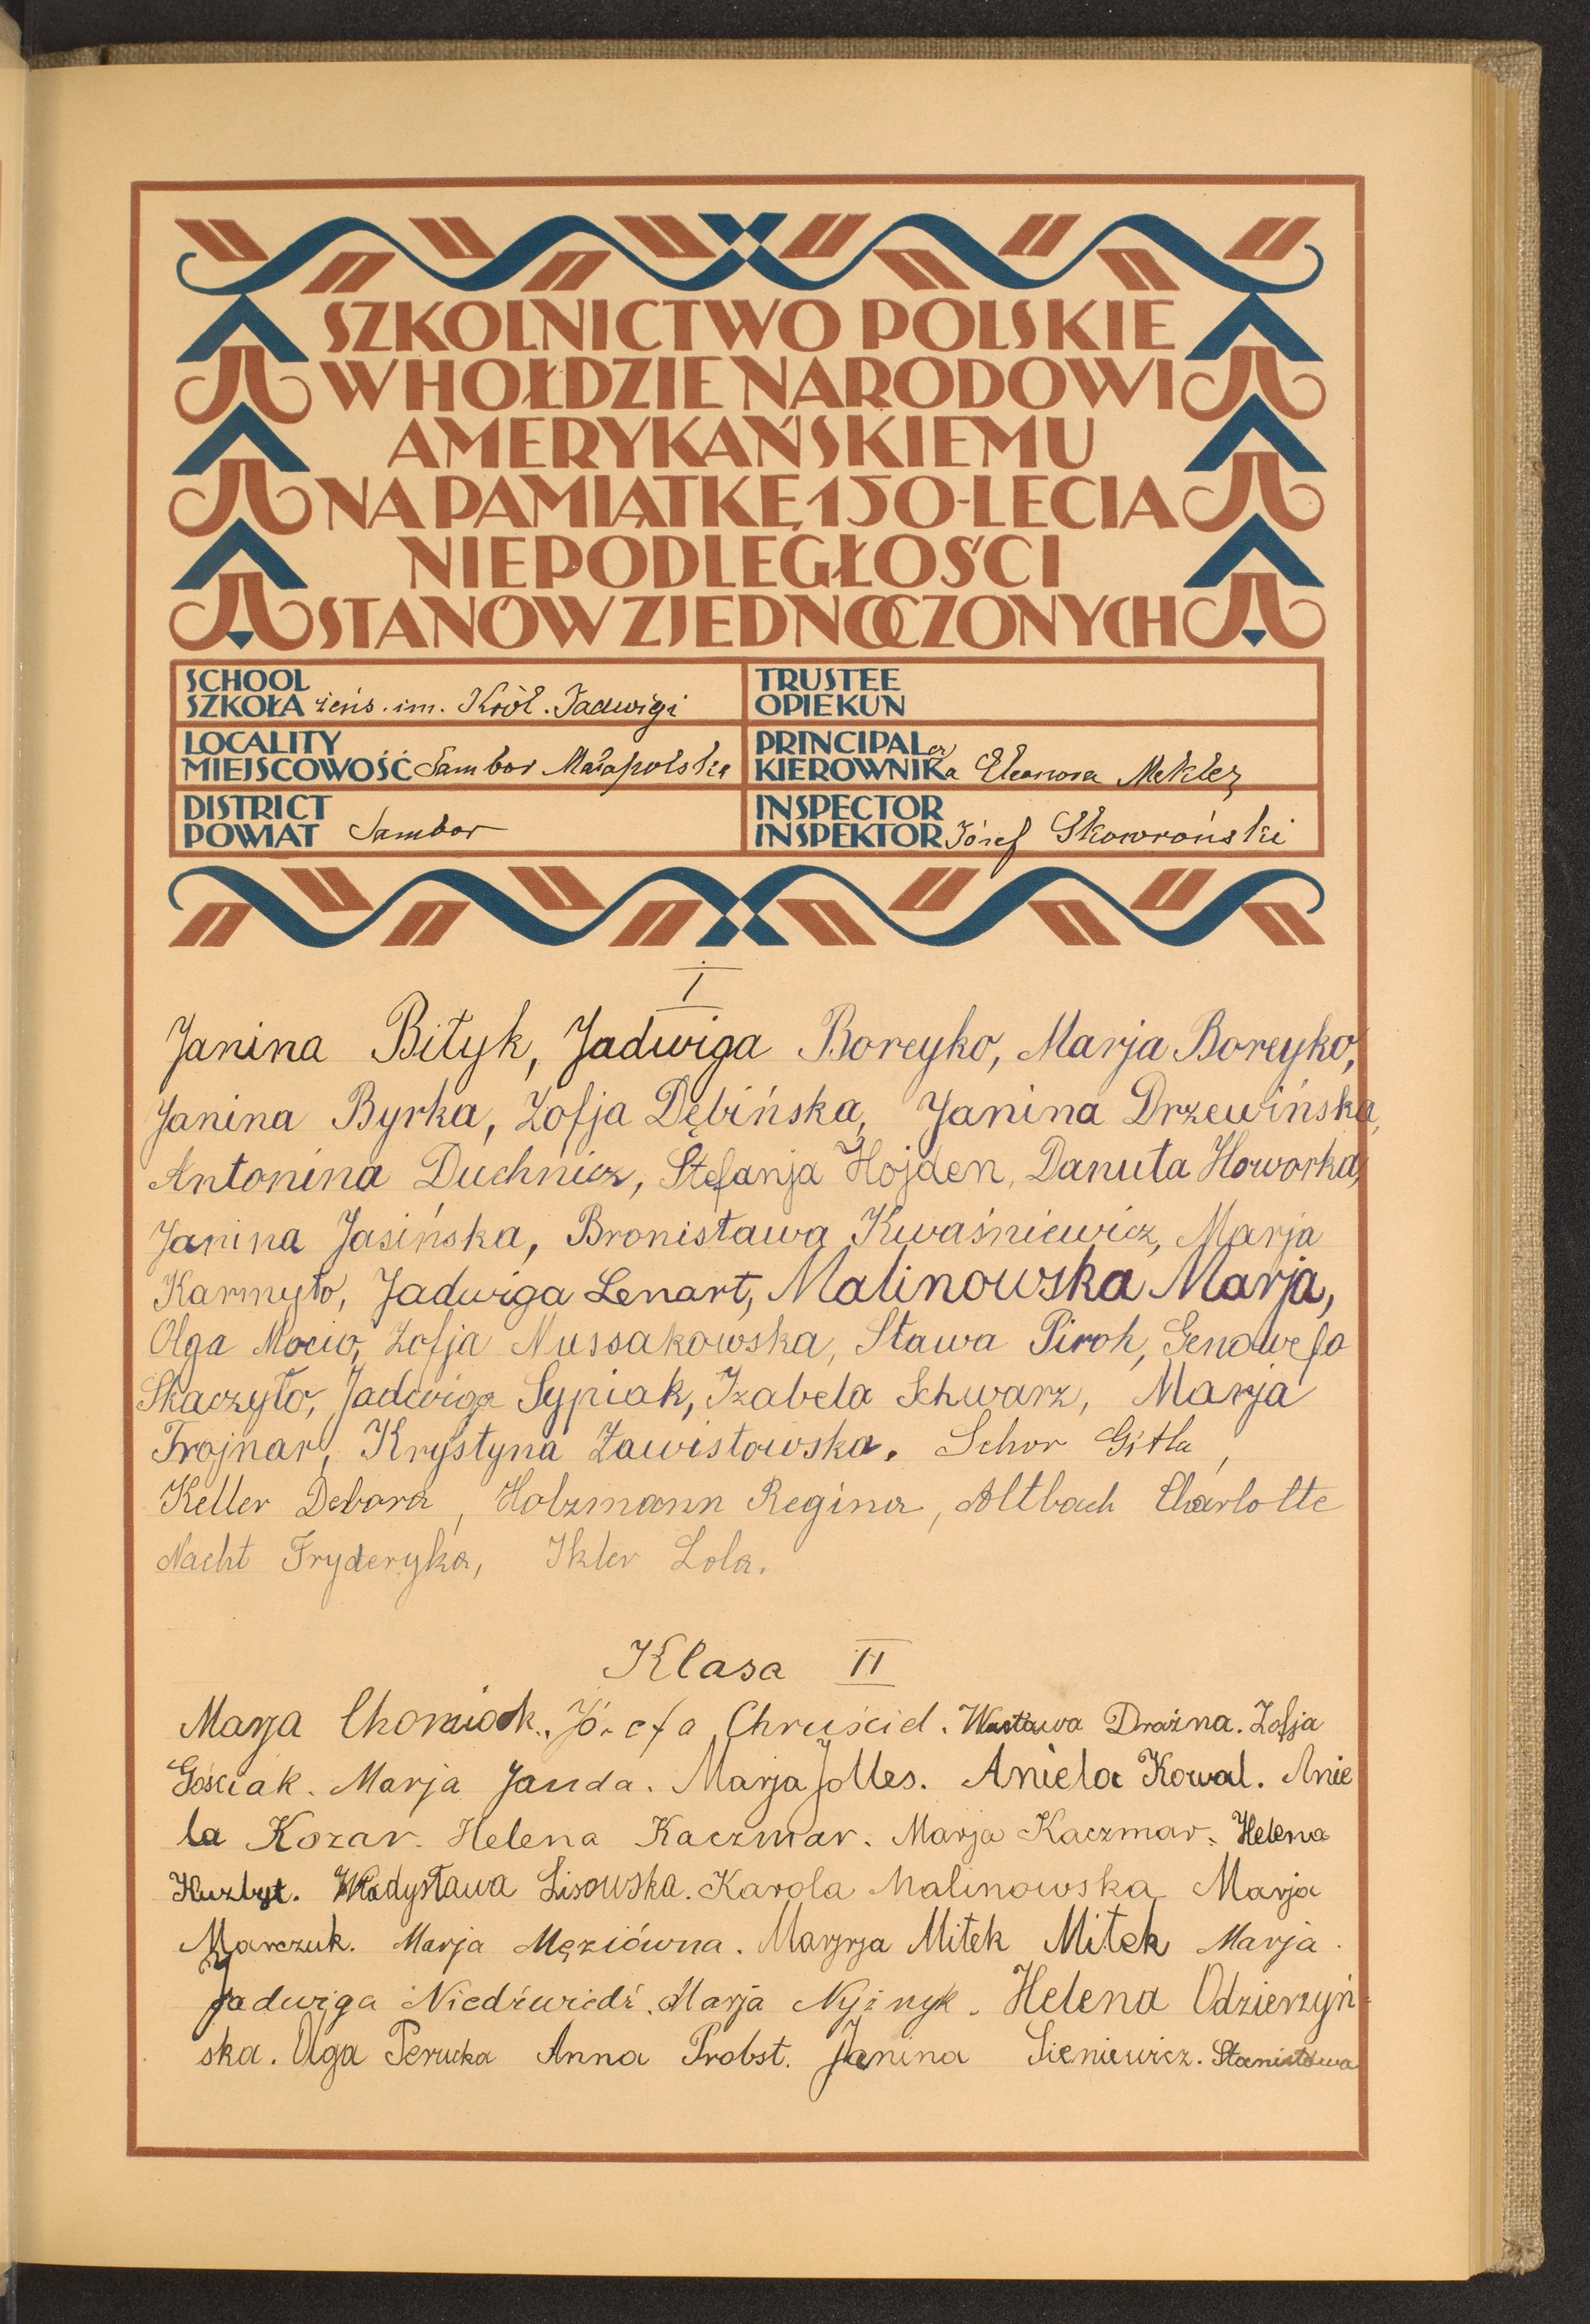 SZKOLNICTWO POLSKIE
W HOŁDZIE NARODOWI
AMERYKAŃSKIEMU
NA PAMIĄTKĘ 150-LECIA
NIEPODLEGŁOŚCI
STANÓW ZJEDNOCZONYCH
SCHOOL
SZKOŁA żeńs. im. Król. Jadwigi
TRUSTEE
OPIEKUN
LOCALITY
MIEJSCOWOŚĆ Sambor Małopolska
PRINCIPAL
KIEROWNIKa Eleonora Mekler
DISTRICT
POWIAT Sambor
INSPECTOR
INSPEKTOR Józef Skowroński
I
Janina Bityk, Jadwiga Boreyko, Marja Boreyko,
Janina Byrka, Zofja Dębińska, Janina Drzewińska,
Antonina Duchnicz, Stefanja Hojden, Danuta Howorka,
Janina Jasińska, Bronisława Kwaśniewicz, Marja
Karmyło, Jadwiga Lenart, Malinowska Marja,
Olga Mocio, Zofja Mussakowska, Sława Piroh, Genowefa
Skaczyło, Jadwiga Sypiak, Izabela Schwarz, Marja
Trojnar, Krystyna Zawistowska. Schor Gitla,
Keller Debora, Holzmann Regina, Altbach Charlotte
Nacht Fryderyka, Ikler Lola.
Klasa II
Marja Chomiak. Józefa Chruściel. Wacława Draźna. Zofja
Gościak. Marja Janda. Marja Jolles. Aniela Kowal. Anie
la Kozar. Helena Kaczmar. Marja Kaczmar. Helena
Kuzbyt. Władysława Lisowska. Karola Malinowska Marja
Marczuk. Marja Męziówna. Maryja Mitek Mitek Marja.
Jadwiga Niedźwiedź. Marja Nyżnyk. Helena Odzierzyń-
ska. Olga Perucka Anna Probst. Janina Sieniewicz. Stanisława